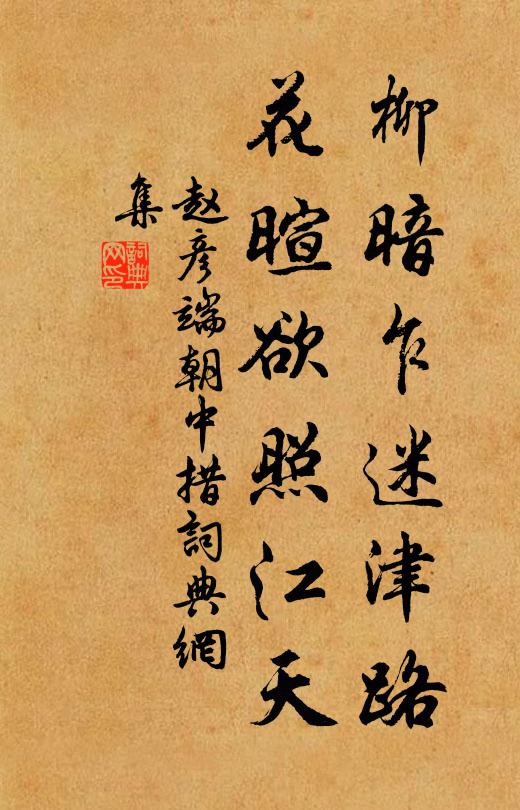 柳暗乍迷津路
花暄欲照江天
赵彦端朝中措詞典網
集
詞典网印